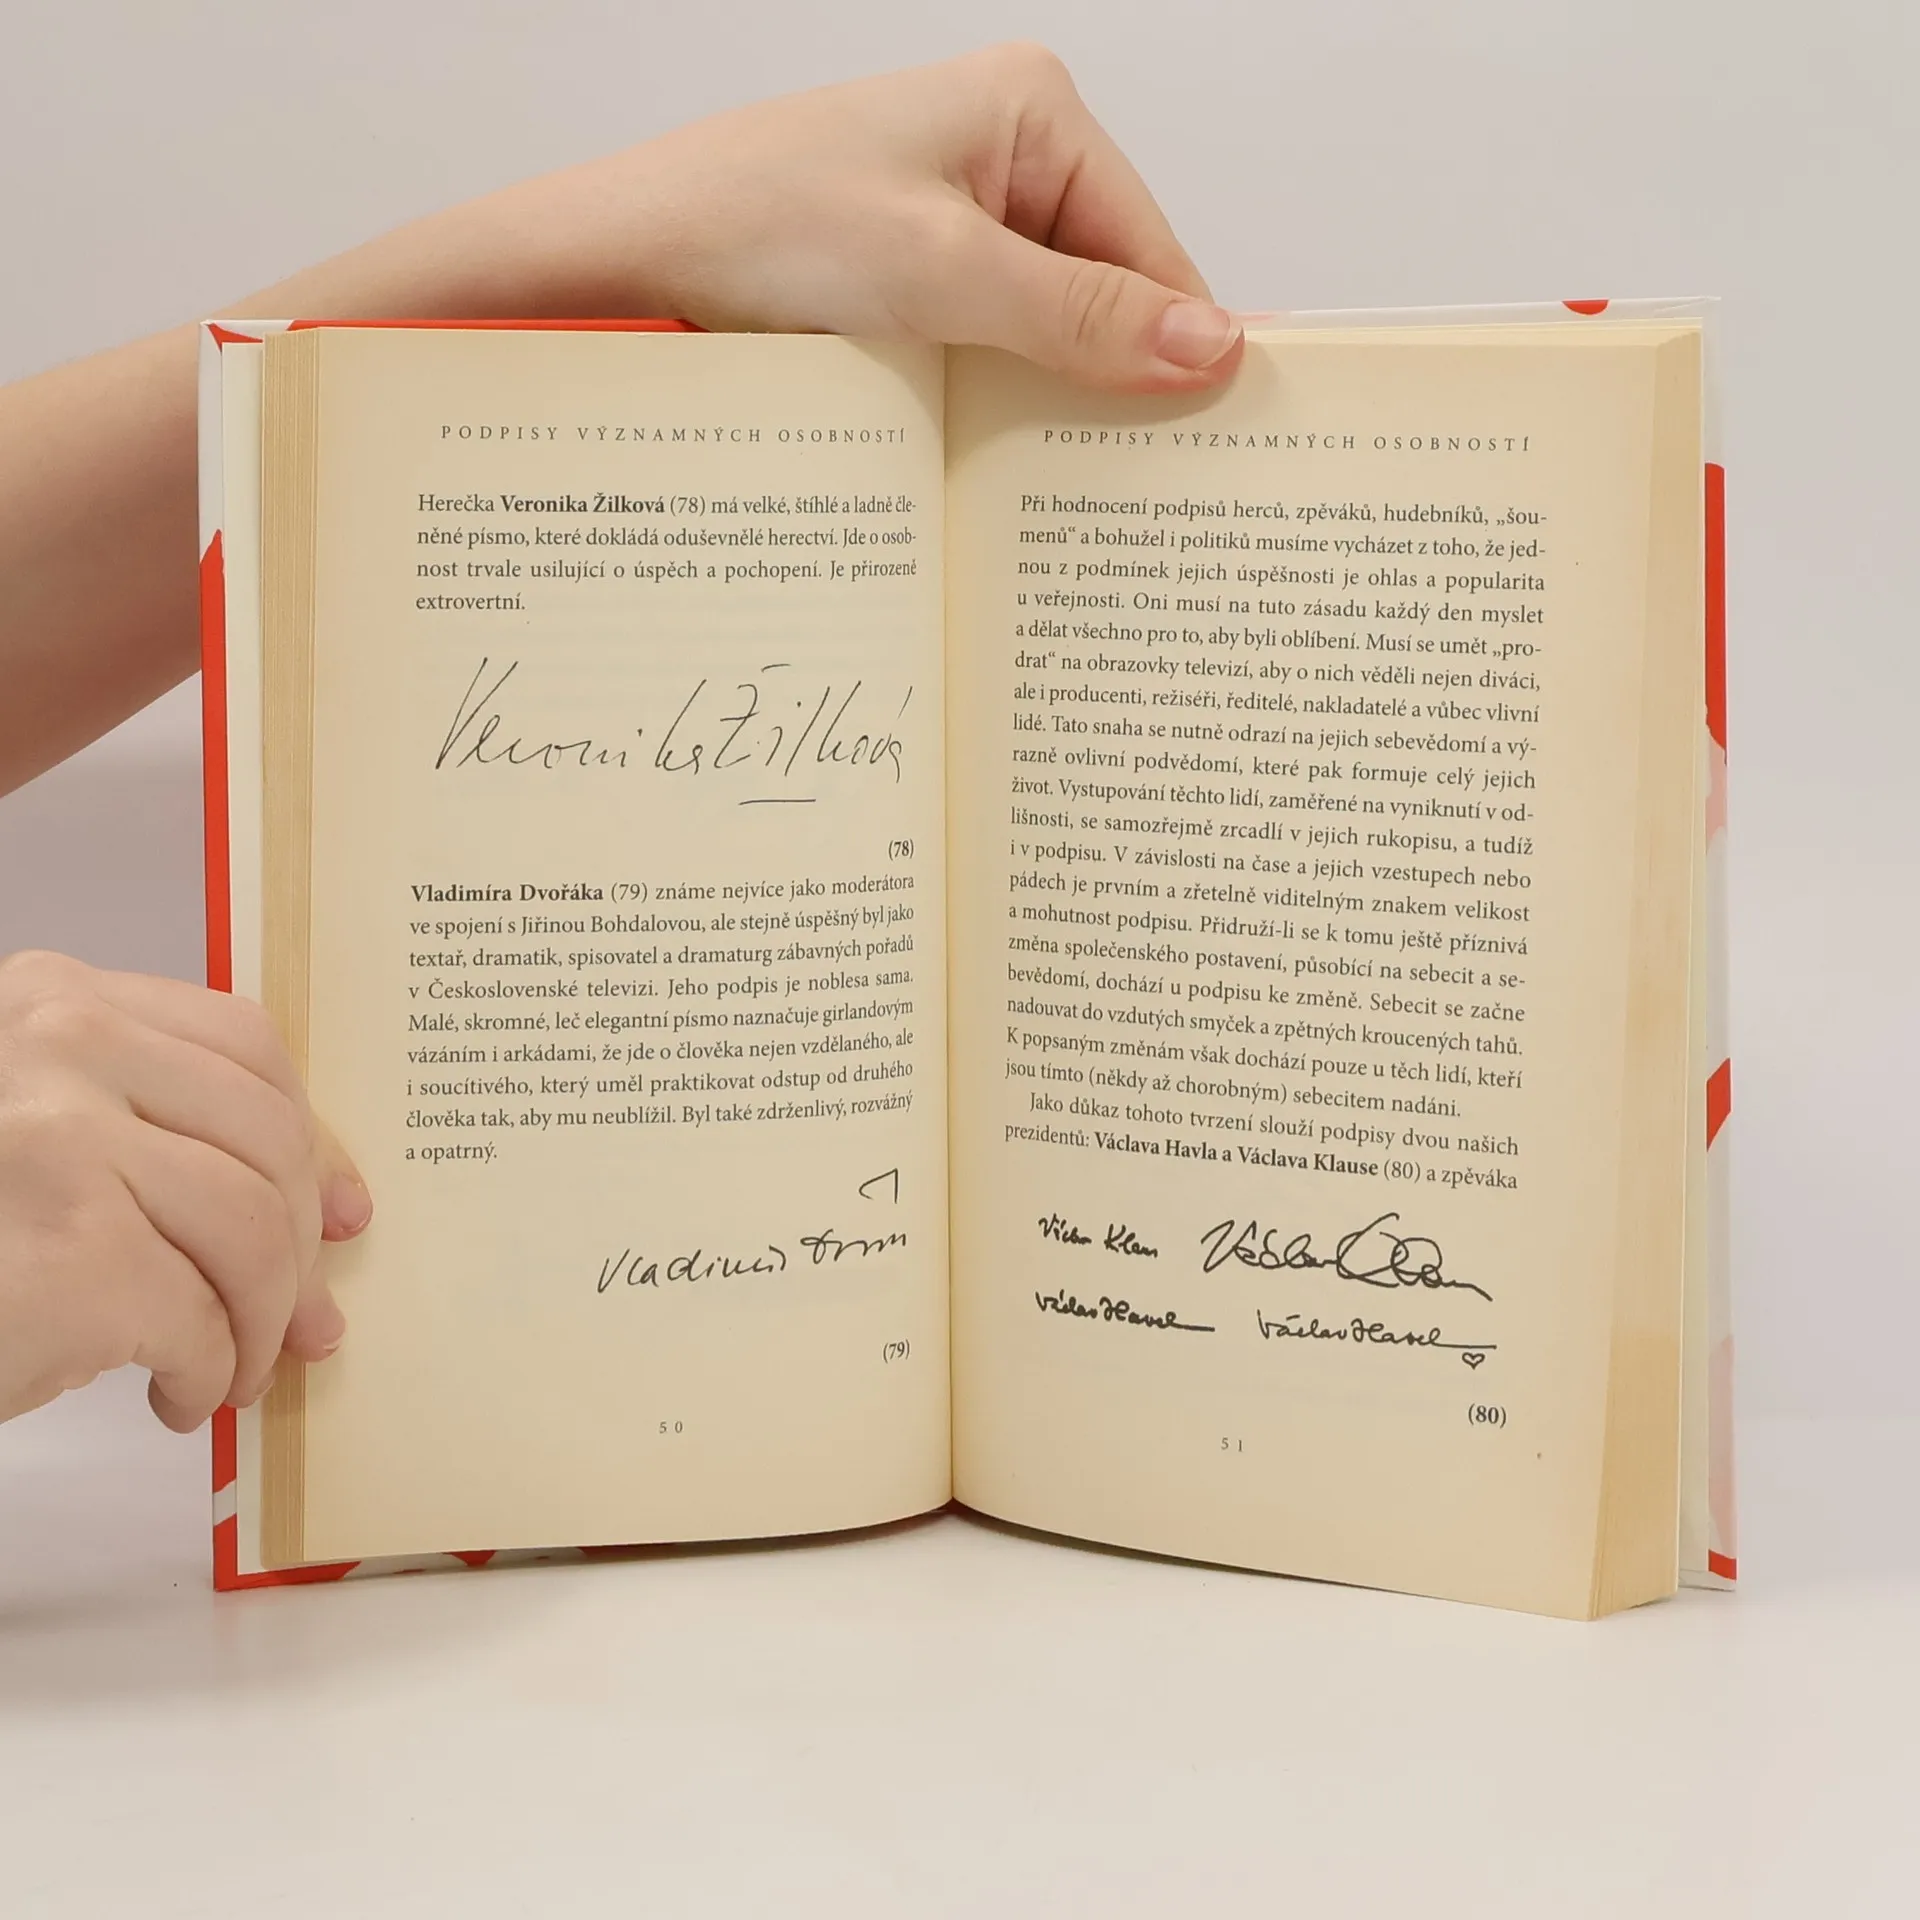 PODPISY VÝZNAMNÝCH OSOBNOSTÍ
Herečka Veronika Žilková (78) má velké, štíhlé a ladně čle-
něné písmo, které dokládá oduševnělé herectví. Jde o osob-
nost trvale usilující o úspěch a pochopení. Je přirozeně
extrovertní.
Veronika Žilková
(78)
Vladimíra Dvořáka (79) známe nejvíce jako moderátora
ve spojení s Jiřinou Bohdalovou, ale stejně úspěšný byl jako
textař, dramatik, spisovatel a dramaturg zábavných pořadů
v Československé televizi. Jeho podpis je noblesa sama.
Malé, skromné, leč elegantní písmo naznačuje girlandovým
vázáním i arkádami, že jde o člověka nejen vzdělaného, ale
i soucítivého, který uměl praktikovat odstup od druhého
člověka tak, aby mu neublížil. Byl také zdrženlivý, rozvážný
a opatrný.
Vladimír
(79)
50
PODPISY VÝZNAMNÝCH OSOBNOSTÍ
Při hodnocení podpisů herců, zpěváků, hudebníků, „šou-
menů“ a bohužel i politiků musíme vycházet z toho, že jed-
nou z podmínek jejich úspěšnosti je ohlas a popularita
u veřejnosti. Oni musí na tuto zásadu každý den myslet
a dělat všechno pro to, aby byli oblíbení. Musí se umět „pro-
drat“ na obrazovky televizí, aby o nich věděli nejen diváci,
ale i producenti, režiséři, ředitelé, nakladatelé a vůbec vlivní
lidé. Tato snaha se nutně odrazí na jejich sebevědomí a vý-
razně ovlivní podvědomí, které pak formuje celý jejich
život. Vystupování těchto lidí, zaměřené na vyniknutí v od-
lišnosti, se samozřejmě zrcadlí v jejich rukopisu, a tudíž
i v podpisu. V závislosti na čase a jejich vzestupech nebo
pádech je prvním a zřetelně viditelným znakem velikost
a mohutnost podpisu. Přidruží-li se k tomu ještě příznivá
změna společenského postavení, působící na sebecit a se-
bevědomí, dochází u podpisu ke změně. Sebecit se začne
nadouvat do vzdutých smyček a zpětných kroucených tahů.
K popsaným změnám však dochází pouze u těch lidí, kteří
jsou tímto (někdy až chorobným) sebecitem nadáni.
Jako důkaz tohoto tvrzení slouží podpisy dvou našich
prezidentů: Václava Havla a Václava Klause (80) a zpěváka
Václav Klaus Václav
Václav Havel Václav Havel
(80)
51